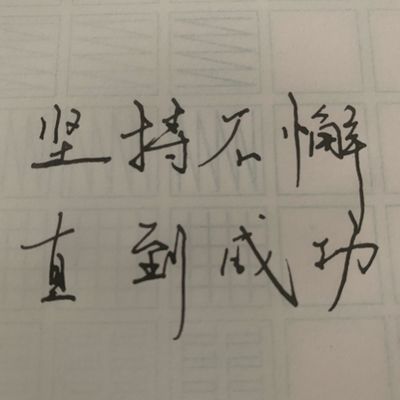 坚持不懈
直到成功